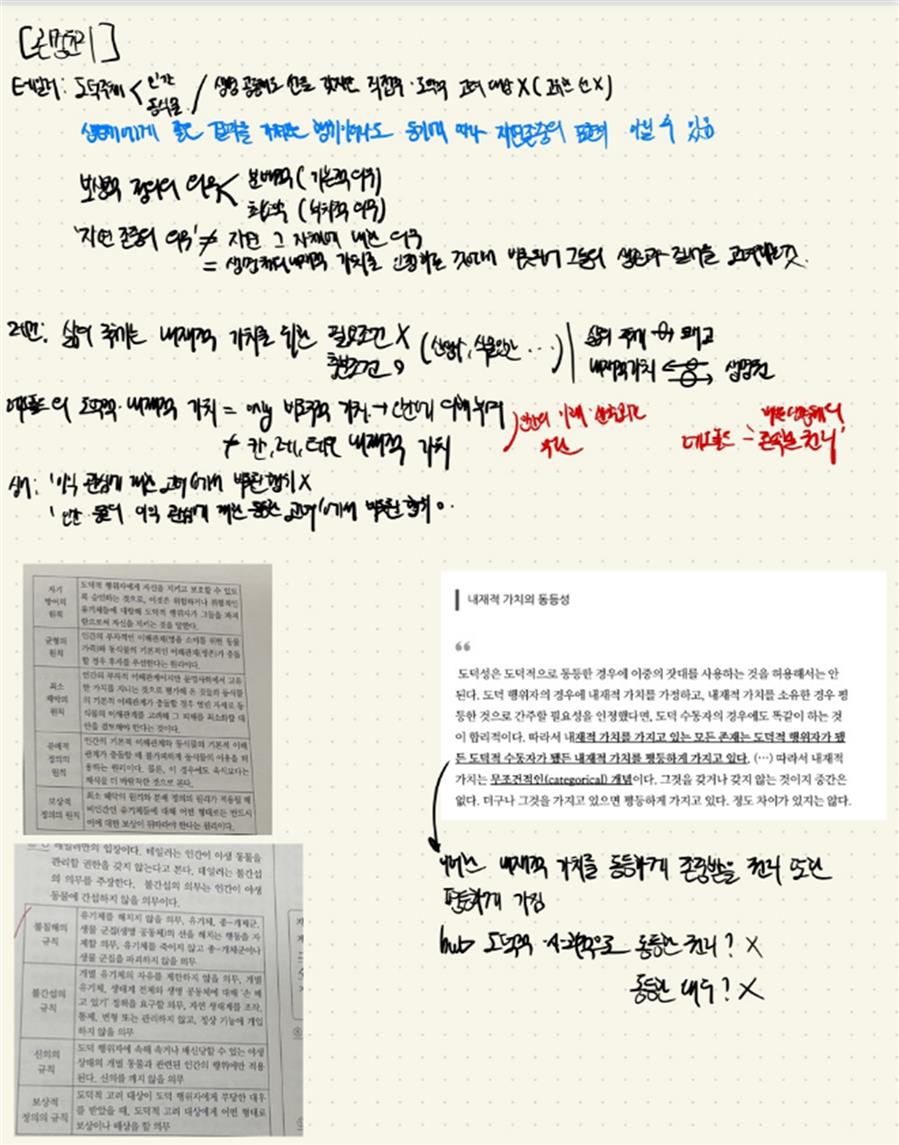 [환경윤리]
테일러: 도덕주체 < 인간 동식물 / 생명 공동체도 선을 갖지만 직접적·도덕적 고려 대상 X (고유한 선 X)
생명체에게 좋은 결과를 가져오는 행위이더라도 동기에 따라 자연존중의 표현이 아닐 수 있음
보상적 정의의 의무 < 분배적 (기본적 의무)
최소악 (부차적 의무)
'자연 존중의 의무' ≠ 자연 그 자체에 대한 의무
= 생명체의 내재적 가치를 인정하는 것에 바탕하여 그들의 생존과 존재를 고려하는 것.
레건: 삶의 주체는 내재적 가치를 위한 필요조건 X
충분조건 O
(신생아, 식물인간 ...)
삶의 주체
내재적가치 생명권
레오폴드의 도덕적·내재적 가치 = only 비도구적 가치 → 인간에 의해 부여
≠ 칸, 레, 테의 내재적 가치
인간의 이해·산출되는
레오폴드 -
'존속할 권리'
싱어: '이익 관심에 대한 고려'에서 비롯된 협의 X
'인간 동물의 이익 관심에 대한 동등한 고려'에서 비롯된 협의 O
자기 방어의 원칙
도덕적 행위자에게 자신을 지키고 보호할 수 있도
록 승인하는 것으로, 이것은 위험하거나 위협적인
유기체들에 대항해 도덕적 행위자가 그들을 파괴
함으로써 자신을 지키는 것을 말한다.
균형의 원칙
인간의 부차적인 이해관계(멋을 소비를 위한 동물
가죽)와 동식물의 기본적인 이해관계(생존)가 충돌
할 경우 후자를 우선한다는 원리이다.
최소 해악의 원칙
인간의 부차적 이해관계이지만 문명사회에서 고유
한 가치를 지니는 것으로 평가해 온 것들과 동식물
의 기본적 이해관계가 충돌할 경우 열린 자세로 동
식물의 이해관계를 고려해 그 피해를 최소화할 대
안을 검토해야 한다는 것이다.
분배적 정의의 원칙
인간의 기본적 이해관계와 동식물의 기본적 이해
관계가 충돌할 때 불가피하게 동식물의 이용을 허
용하는 원리이다. 물론, 이 경우에도 육식보다는
채식을 더 바람직한 것으로 본다.
보상적 정의의 원칙
최소 해악의 원리와 분배 정의의 원리가 적용될 때
비인간인 유기체들에 대해 어떤 형태로든 반드시
이에 대한 보상이 뒤따라야 한다는 원리이다.
내재적 가치의 동등성
도덕성은 도덕적으로 동등한 경우에 이중의 잣대를 사용하는 것을 허용해서는 안
된다. 도덕 행위자의 경우에 내재적 가치를 가정하고, 내재적 가치를 소유한 경우 평
등한 것으로 간주할 필요성을 인정했다면, 도덕 수동자의 경우에도 똑같이 하는 것
이 합리적이다. 따라서 내재적 가치를 가지고 있는 모든 존재는 도덕적 행위자가 됐
든 도덕적 수동자가 됐든 내재적 가치를 평등하게 가지고 있다. (…) 따라서 내재적
가치는 무조건적인(categorical) 개념이다. 그것을 갖거나 갖지 않는 것이지 중간은
없다. 더구나 그것을 가지고 있으면 평등하게 가지고 있다. 정도 차이가 있지는 않다.
내재적 가치를 동등하게 존중받을 권리 또한
평등하게 가짐
but 도덕적·사회적으로 동등한 권리? X
동등한 대우? X
테일러만의 입장이다. 테일러는 인간이 야생 동물을
관리할 권한을 갖지 않는다고 본다. 테일러는 불간섭
의 의무를 주장한다. 불간섭의 의무는 인간이 야생
동물에 간섭하지 않을 의무이다.
불침해의 규칙
유기체를 해치지 않을 의무, 유기체, 종-개체군,
생물 군집(생명 공동체)의 선을 해치는 행동을 자
제할 의무, 유기체를 죽이지 않고 종-개체군이나
생물 군집을 파괴하지 않을 의무
불간섭의 규칙
개별 유기체의 자유를 제한하지 않을 의무, 개별
유기체, 생태계 전체와 생명 공동체에 대해 '손 떼
고 있기' 정책을 요구할 의무, 자연 생태계를 조작,
통제, 변형 또는 관리하지 않고, 정상 기능에 개입
하지 않을 의무
신의의 규칙
도덕 행위자에 속해 속거나 배신당할 수 있는 야생
상태의 개별 동물과 관련된 인간의 행위에만 적용
된다. 신의를 깨지 않을 의무
보상적 정의의 규칙
도덕적 고려 대상이 도덕 행위자에게 부당한 대우
를 받았을 때, 도덕적 고려 대상에게 어떤 형태로
보상이나 배상을 할 의무